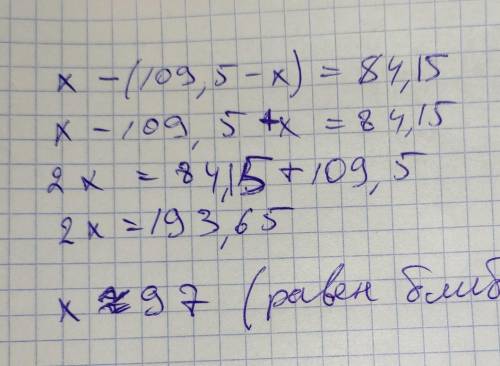 x - (109,5 - x) = 84,15
x - 109,5 + x = 84,15
2x = 84,15 + 109,5
2x = 193,65
x ≈ 97 (равен